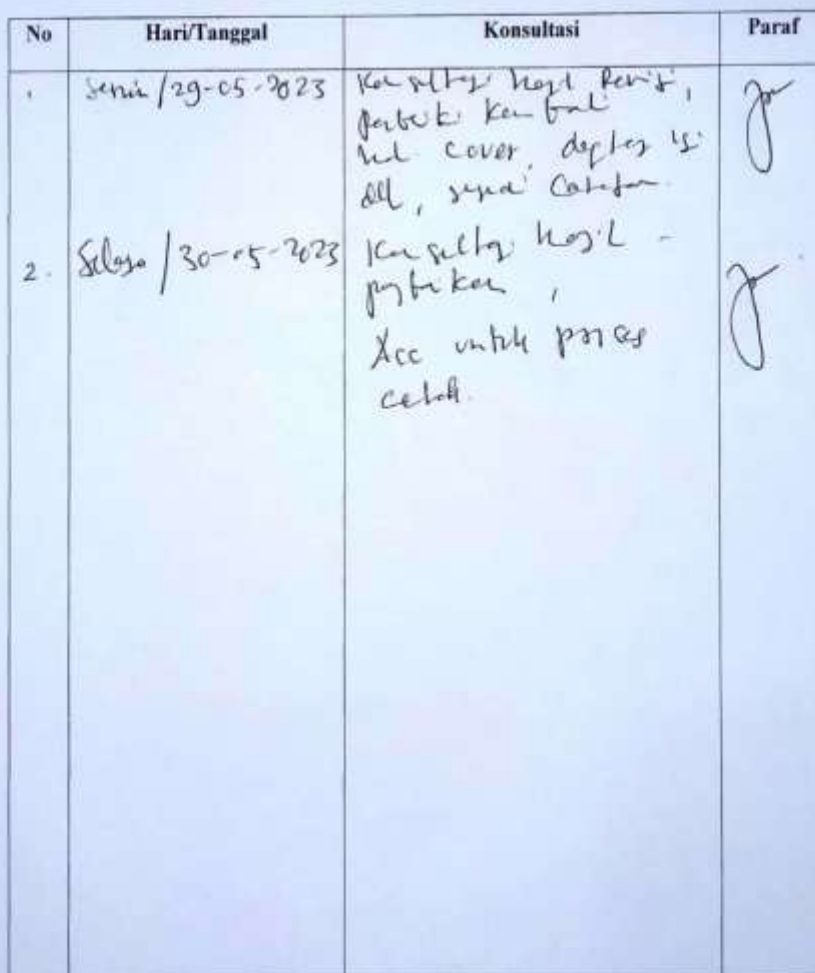 No Hari/Tanggal Konsultasi Paraf
Senin / 29-05-2023 Konsultasi hasil Revisi,
perbaiki kembali
hal. cover, daftar isi
dll, sesuai Catatan.
2. Selasa / 30-05-2023 Konsultasi hasil -
perbaikan,
Acc untuk proses
cetak.